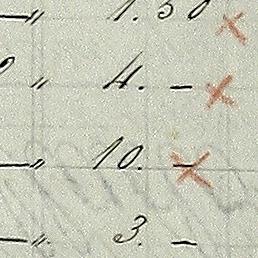 — „ 1. 50 ×
„ 4. — ×
— „ 10. — ×
— „ 3. —